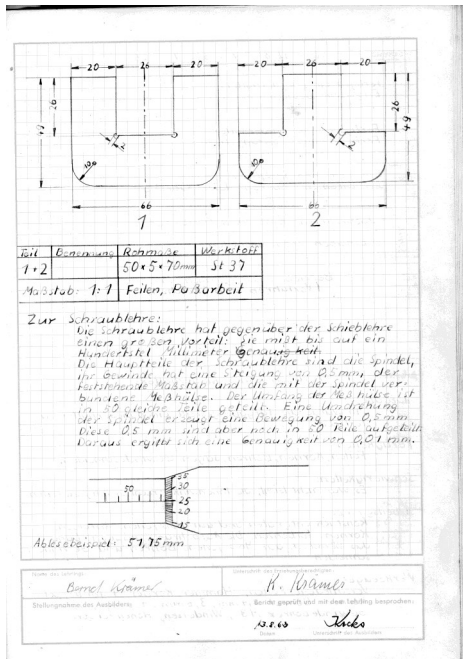 20 26 20 20 26 20
49 26 26 49
2 2
R10 R10
66 66
1 2
Teil Benennung Rohmaße Werkstoff
1+2 50x5x70mm St 37
Maßstab: 1:1 Feilen, Paßarbeit
Zur Schraublehre:
Die Schraublehre hat gegenüber der Schieblehre
einen großen Vorteil: Sie mißt bis auf ein
Hundertstel Millimeter genau.
Die Hauptteile der Schraublehre sind die Spindel,
ihr Gewinde hat eine Steigung von 0,5mm, der
feststehende Maßstab und die mit der Spindel ver-
bundene Meßhülse. Der Umfang der Meßhülse ist
in 50 gleiche Teile geteilt. Eine Umdrehung
der Spindel erzeugt eine Bewegung von 0,5mm
Diese 0,5 mm sind aber noch in 50 Teile aufgeteilt
Daraus ergibt sich eine Genauigkeit von 0,01 mm.
50
35
30
25
20
15
Ablesebeispiel: 51,75mm
Name des Lehrlings Unterschrift des Erziehungsberechtigten
Bernd Krämer K. Krämer
Stellungnahme des Ausbilders: Bericht geprüft und mit dem Lehrling besprochen:
13.8.63
Datum Unterschrift des Ausbilders